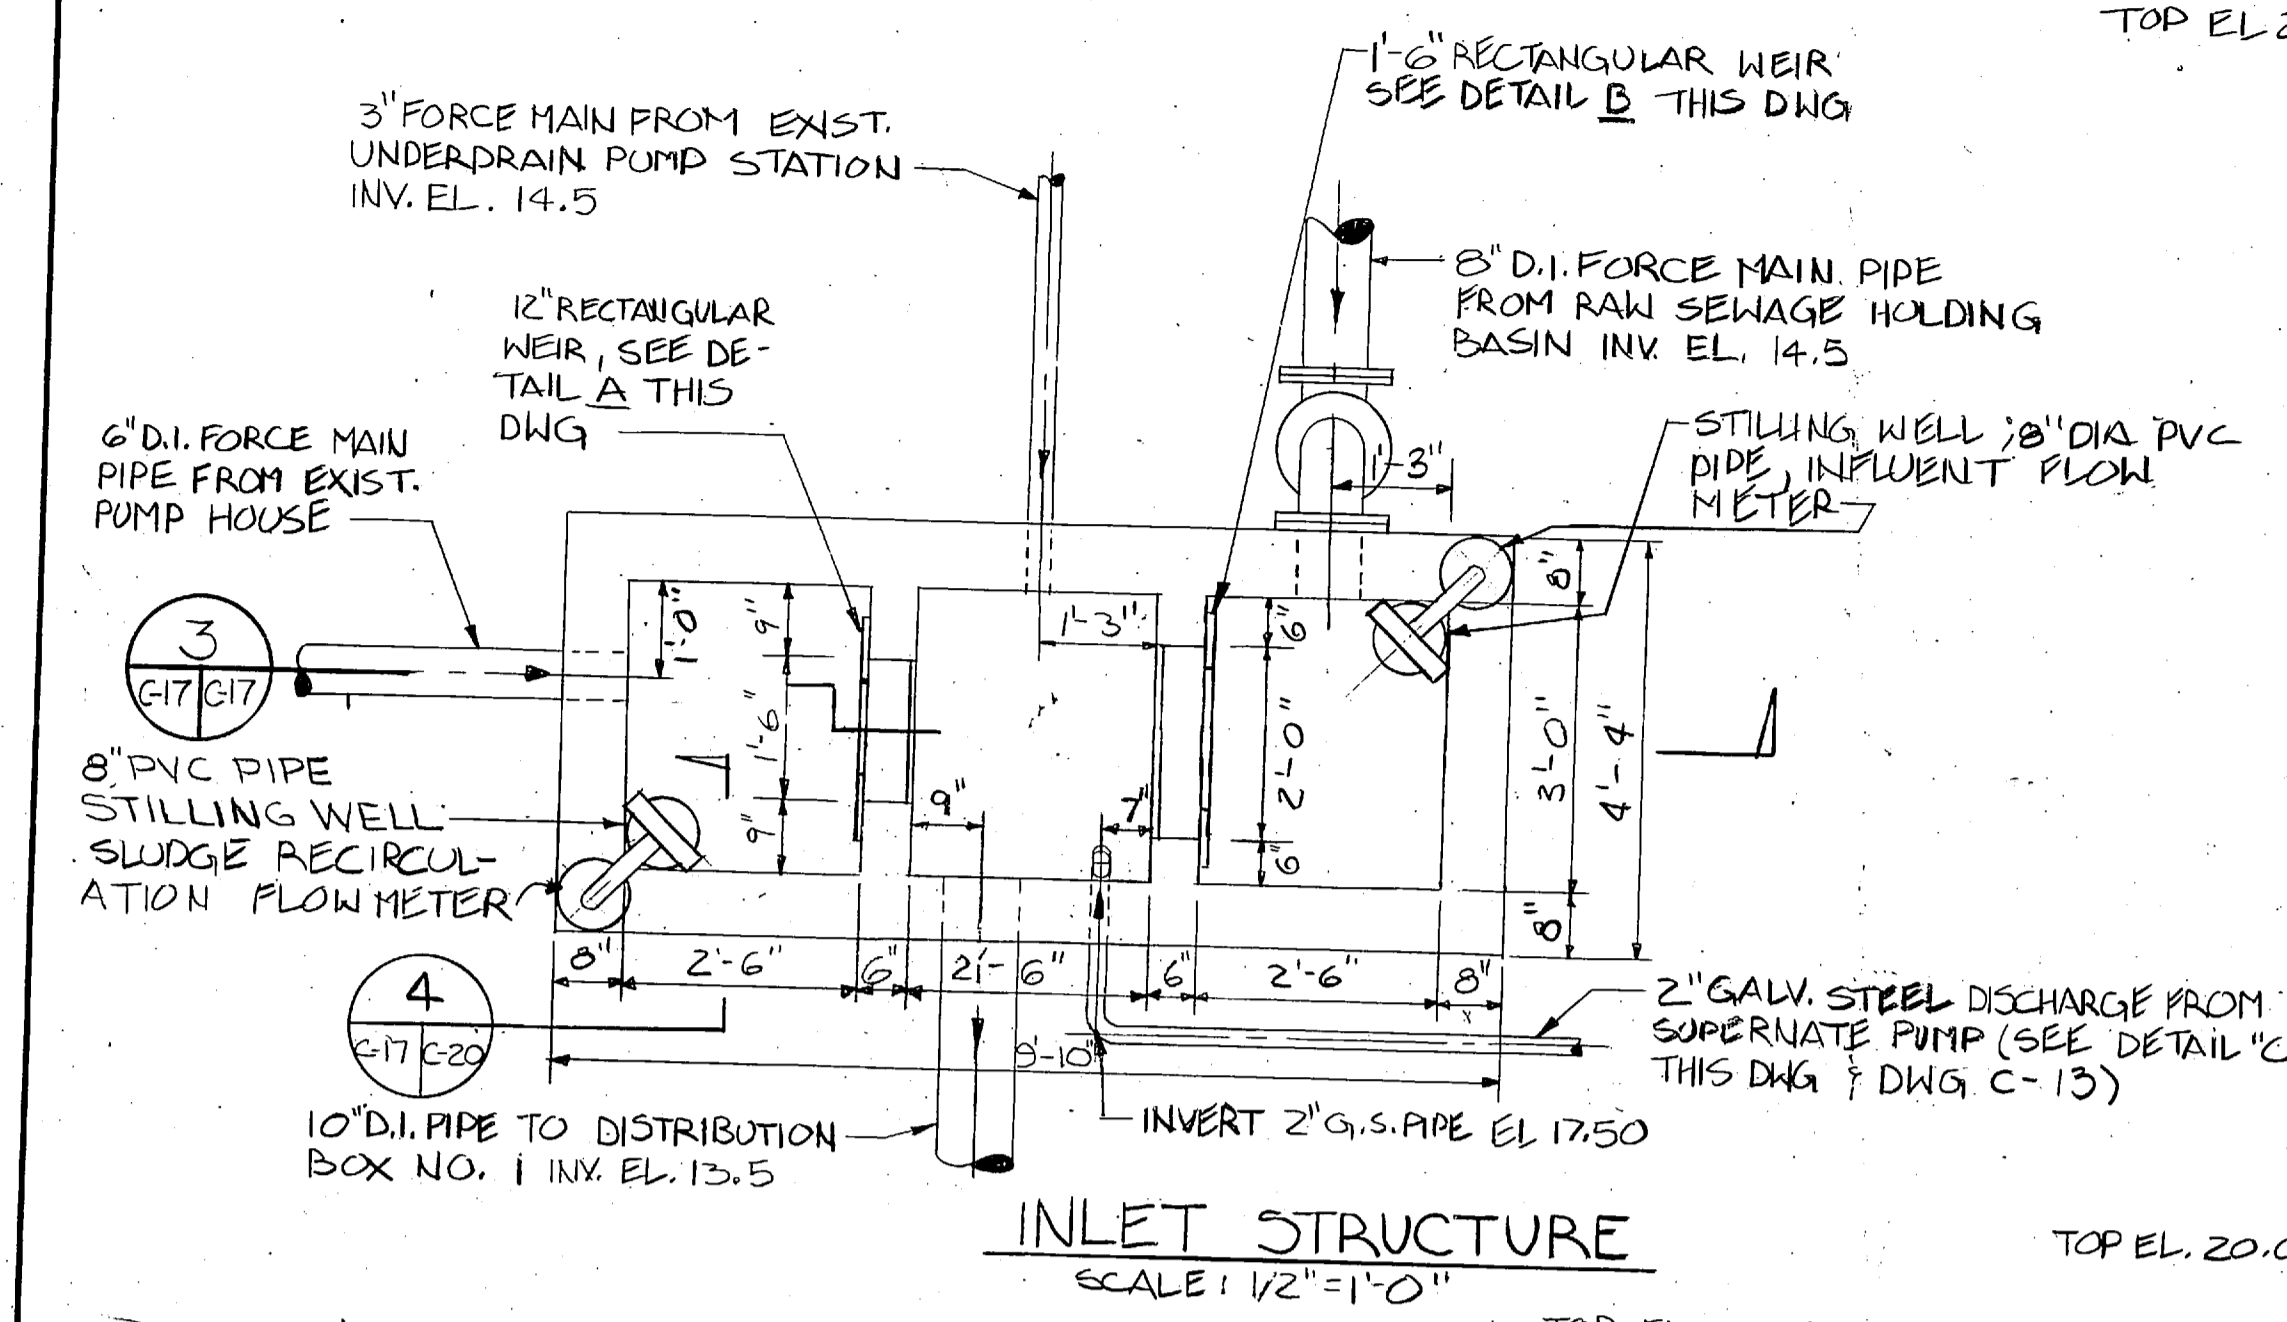 TOP EL 2
1'-6" RECTANGULAR WEIR
SEE DETAIL B THIS DWG
3" FORCE MAIN FROM EXIST.
UNDERDRAIN PUMP STATION
INV. EL. 14.5
8" D.I. FORCE MAIN PIPE
FROM RAW SEWAGE HOLDING
BASIN INV. EL. 14.5
12" RECTANGULAR
WEIR, SEE DE-
TAIL A THIS
DWG
6" D.I. FORCE MAIN
PIPE FROM EXIST.
PUMP HOUSE
STILLING WELL; 8" DIA PVC
PIPE, INFLUENT FLOW
METER
1'-3"
8"
1'-0"
9"
1'-3"
6"
3
C-17 C-17
1'-6"
2'-0"
3'-0"
4'-4"
8" PVC PIPE
STILLING WELL
SLUDGE RECIRCUL-
ATION FLOW METER
9"
9"
7"
6"
8"
8"
2'-6"
6"
2'-6"
6"
2'-6"
8"
4
C-17 C-20
9'-10"
2" GALV. STEEL DISCHARGE FROM
SUPERNATE PUMP (SEE DETAIL "C
THIS DWG & DWG C-13)
10" D.I. PIPE TO DISTRIBUTION
BOX NO. 1 INV. EL. 13.5
INVERT 2" G.S. PIPE EL 17.50
INLET STRUCTURE
SCALE: 1/2"=1'-0"
TOP EL. 20.0